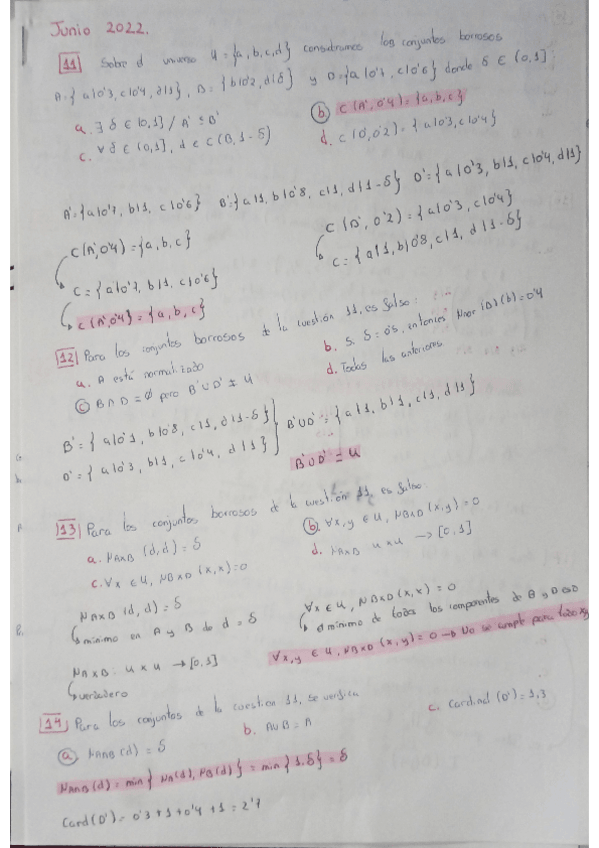 Junio 2022.
11 Sobre el universo U = {a,b,c,d} consideramos los conjuntos borrosos
A = { a|0'3, c|0'4, d|1}, B = {b|0'2, d|δ} y D = {a|0'3, c|0'6} donde δ ∈ (0,1]:
a. ∃ δ ∈ (0,1] / A' ≤ B'
b. C(A',0'4) = {a,b,c}
c. ∀ δ ∈ (0,1], d ∈ C(B, 1-δ)
d. C(D,0'2) = { a|0'3, c|0'4}
A' = {a|0'7, b|1, c|0'6} B' = {a|1, b|0'8, c|1, d|1-δ} D' = {a|0'3, b|1, c|0'4, d|1}
C(A',0'4) = {a,b,c}
C(D', 0'2) = {a|0'3, c|0'4}
C = {a|0'7, b|1, c|0'6}
C = {a|1, b|0'8, c|1, d|1-δ}
C(A',0'4) = {a,b,c}
12 Para los conjuntos borrosos de la cuestión 11, es falso:
a. A está normalizado
b. Si δ = 0'5, entonces
c. B ∩ D = ∅ pero B' ∪ D' ≠ U
d. Todas las anteriores
B' = { a|0'1, b|0'8, c|1, d|1-δ}
D' = { a|0'3, b|1, c|0'4, d|1}
B' ∪ D' = {a|1, b|1, c|1, d|1}
B' ∪ D' = U
13 Para los conjuntos borrosos de la cuestión 11, es falso:
a. μA×B (d,d) = δ
b. ∀x,y ∈ U, μB×D (x,y) = 0
c. ∀x ∈ U, μB×D (x,x) = 0
d. μA×B U×U → [0,1]
μA×B (d,d) = δ
mínimo en A y B de d = δ
∀x ∈ U, μB×D (x,x) = 0
el mínimo de todos los componentes de B y D es 0
μA×B: U×U → [0,1]
verdadero
∀x,y ∈ U, μB×D (x,y) = 0 → No se cumple para todo xy
14 Para los conjuntos de la cuestión 11, se verifica
a. μA∩B (d) = δ
b. A∪B = A
c. Cardinal (D') = 1,3
μA∩B (d) = min { μA(d), μB(d)} = min {1,δ} = δ
Card(D') = 0'3 + 1 + 0'4 + 1 = 2'7